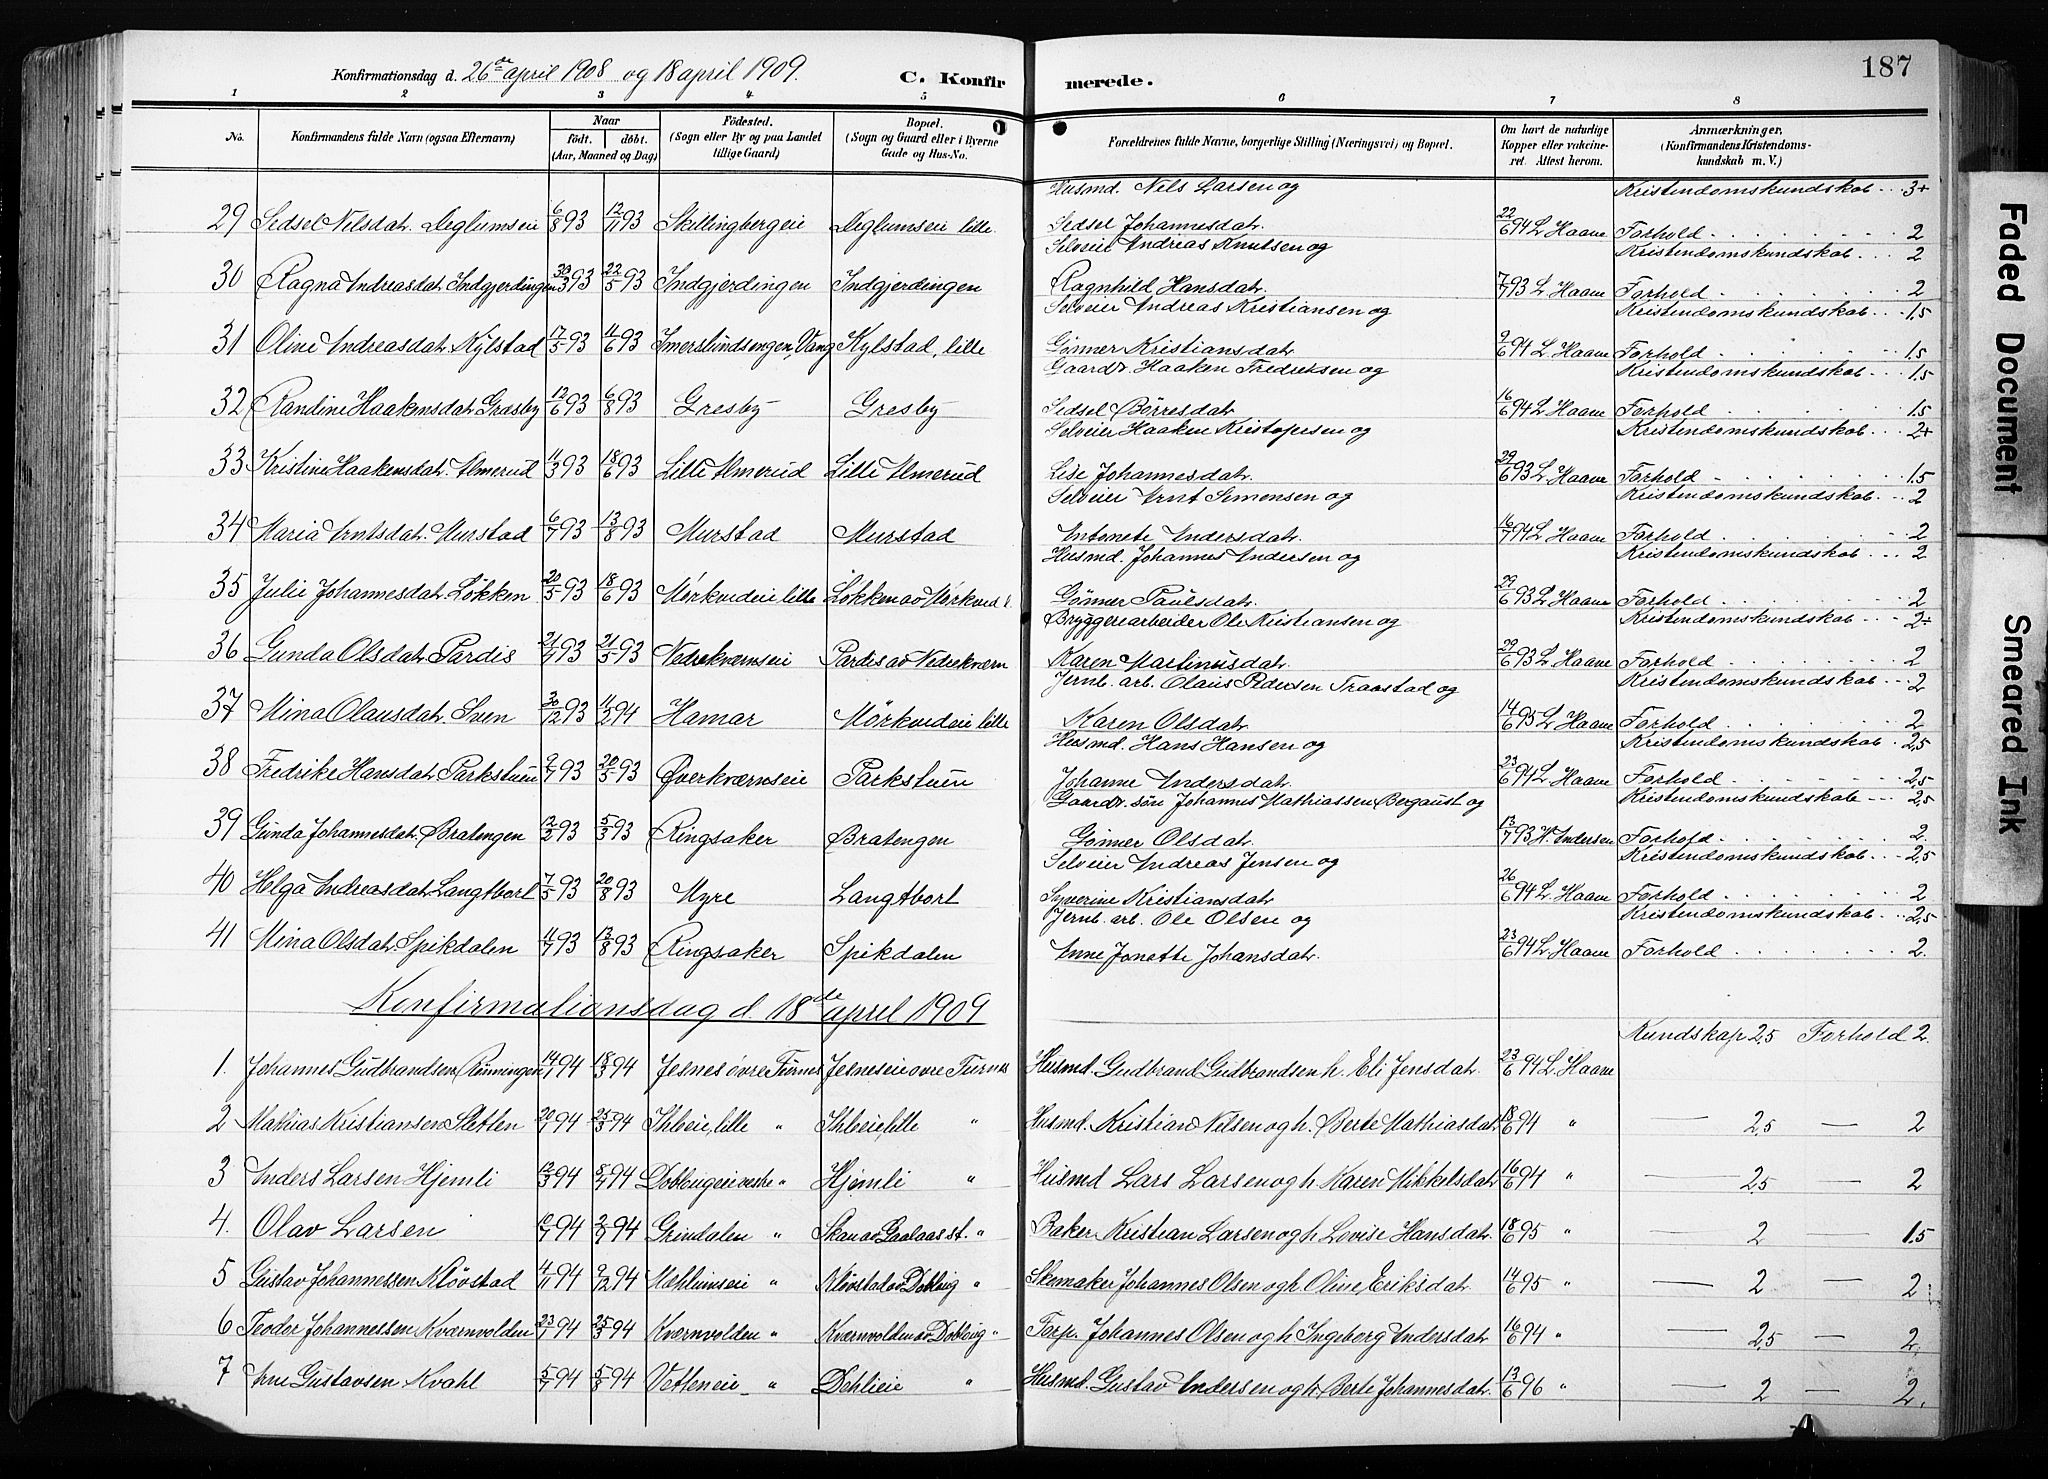 Konfirmationsdag d. 26de april 1908 og 18 april 1909. C. Konfirmerede. 187
1 2 3 4 5 6 7 8
No. Konfirmandens fulde Navn (ogsaa Efternavn) Naar født. døbt. (Aar, Maaned og Dag) Fødested. (Sogn eller By og paa Landet tillige Gaard) Bopæl. (Sogn og Gaard eller i Byerne Gade og Hus-No. Forældrenes fulde Navne, borgerlige Stilling (Næringsvei) og Bopæl. Om havt de naturlige Kopper eller vakcineret. Attest herom. Anmærkninger. (Konfirmandens Kristendomskundskab m. V.)
Husmd. Nels Larsen og Kristendomskundskab 3+
29 Sedsel Nelsdat. Deglumseie 6/8 93 12/11 93 Skillingbergeie Deglumseie lille. Sedsel Johannesdat. 22/6 94 L. Haave Forhold 2
Selveier Andreas Knutsen og Kristendomskundskab 2
30 Ragna Andreasdat. Indgjerdingen 30/3 93 22/5 93 Indgjerdingen Indgjerdingen Ragnhild Hansdat. 7/7 93 L. Haave Forhold 2
Selveier Andreas Kristiansen og Kristendomskundskab 1.5
31 Oline Andreasdat. Kylstad 17/5 93 11/6 93 Imerslundsengen, Vang Kylstad, lille Gønner Kristiansdat. 9/6 94 L. Haave Forhold 1.5
Gaardr. Haaken Fredriksen og Kristendomskundskab 1.5
32 Randine Haakensdat. Gresby 12/6 93 6/8 93 Gresby Gresby Sedsel Børresdat. 16/6 94 L. Haave Forhold 1.5
Selveier Haaken Kristofersen og Kristendomskundskab 2+
33 Kristine Haakensdat. Almerud 11/3 93 18/6 93 Lille Almerud Lille Almerud Lise Johannesdat. 29/6 93 L. Haave Forhold 1.5
Selveier Arnt Simensen og Kristendomskundskab 2
34 Maria Arntsdat. Murstad 6/7 93 13/8 93 Murstad Murstad Antonete Andersdat. 16/7 94 L. Haave Forhold 2
Husmd. Johannes Andersen og Kristendomskundskab 2
35 Julie Johannesdat. Løkken 20/5 93 18/6 93 Mørkvedeie lille Løkken av Mørkved l. Gønner Paulsdat. 29/6 93 L. Haave Forhold 2
Bryggeriarbeider Ole Kristiansen og Kristendomskundskab 2+
36 Gunda Olsdat. Pardis 21/4 93 21/5 93 Nedrekværnseie Pardis av Nedrekværn Karen Martinusdat. 29/6 93 L. Haave Forhold 2
Jernb. arb. Olaus Pedersen Traastad og Kristendomskundskab 2
37 Mina Olausdat. Sven 30/12 93 11/2 94 Hamar Mørkvedeie lille Karen Olsdat. 14/6 95 L. Haave Forhold 2
Husmd. Hans Hansen og Kristendomskundskab 2,5
38 Fredrike Hansdat. Parkstuen 9/4 93 20/5 93 Øverkværnseie Parkstuen Johanne Andersdat. 23/6 94 L. Haave Forhold 2,5
Gaardr. søn Johannes Mathiassen Bergaust og Kristendomskundskab 2,5
39 Gunda Johannesdat. Bratengen 12/2 93 5/3 93 Ringsaker Bratengen Gønner Olsdat. 13/7 93 H. Andersen Forhold 2.
Selveier Andreas Jensen og Kristendomskundskab 2,5
40 Helga Andreasdat. Langtbort 7/5 93 20/8 93 Myre Langtbort Syverine Kristiansdat. 26/6 94 L. Haave Forhold 2
Jernb. arb. Ole Olsen og Kristendomskundskab 2,5
41 Mina Olsdat. Spikdalen 11/7 93 13/8 93 Ringsaker Spikdalen Anne Jonette Johansdat. 23/6 94 L. Haave Forhold 2.
Konfirmationsdag d. 18de april 1909
Kundskap 2,5 Forhold 2.
1. Johannes Gudbrandsen Rønningen 14/1 94 18/3 94 Jesnes øvre Furnes Jesneseie øvre Furnes Husmd. Gudbrand Gudbrandsen h. Eli Jensdat. 23/6 94 L. Haave
2 Mathias Kristiansen Sletten 20/1 94 25/3 94 lille " lille " Husmd. Kristian Nilsen og h. Berte Mathiasdat. 18/6 94 " — 2,5 — 2
3 Anders Larsen Hjemli 12/3 94 8/4 94 Doblougeie vestre " Hjemli " Husmd Lars Larsen og h. Karen Mikkelsdat. 16/6 94 " — 2,5 — 2
4. Olav Larsen 94 94 Grindalen " Skau av Gaalaas st. " Baker Kristian Larsen og h. Lovise Hansdat. 18/6 95 " — 2 — 1.5
5 Gustav Johannessen Kløvstad 4/11 94 9/12 94 Mæhlumseie " Kløvstad av Doblug " Skomaker Johannes Olsen og h. Oline Eriksdat. 14/6 95 " — 2 — 2
6 Teodor Johannessen Kværnvolden 23/1 94 25/3 94 Kværnvolden " Kværnvolden av Doblug " Forp. Johannes Olsen og h. Ingeborg Andersdat. 16/6 94 " — 2,5 — 2.
7 Arne Gustavsen Kvahl 3/7 94 5/8 94 Vetteneie " Dehlieie " Husmd. Gustav Andersen og h. Berte Johannesdat. 13/6 96 " — 2 — 2.
Faded Document
Smeared Ink